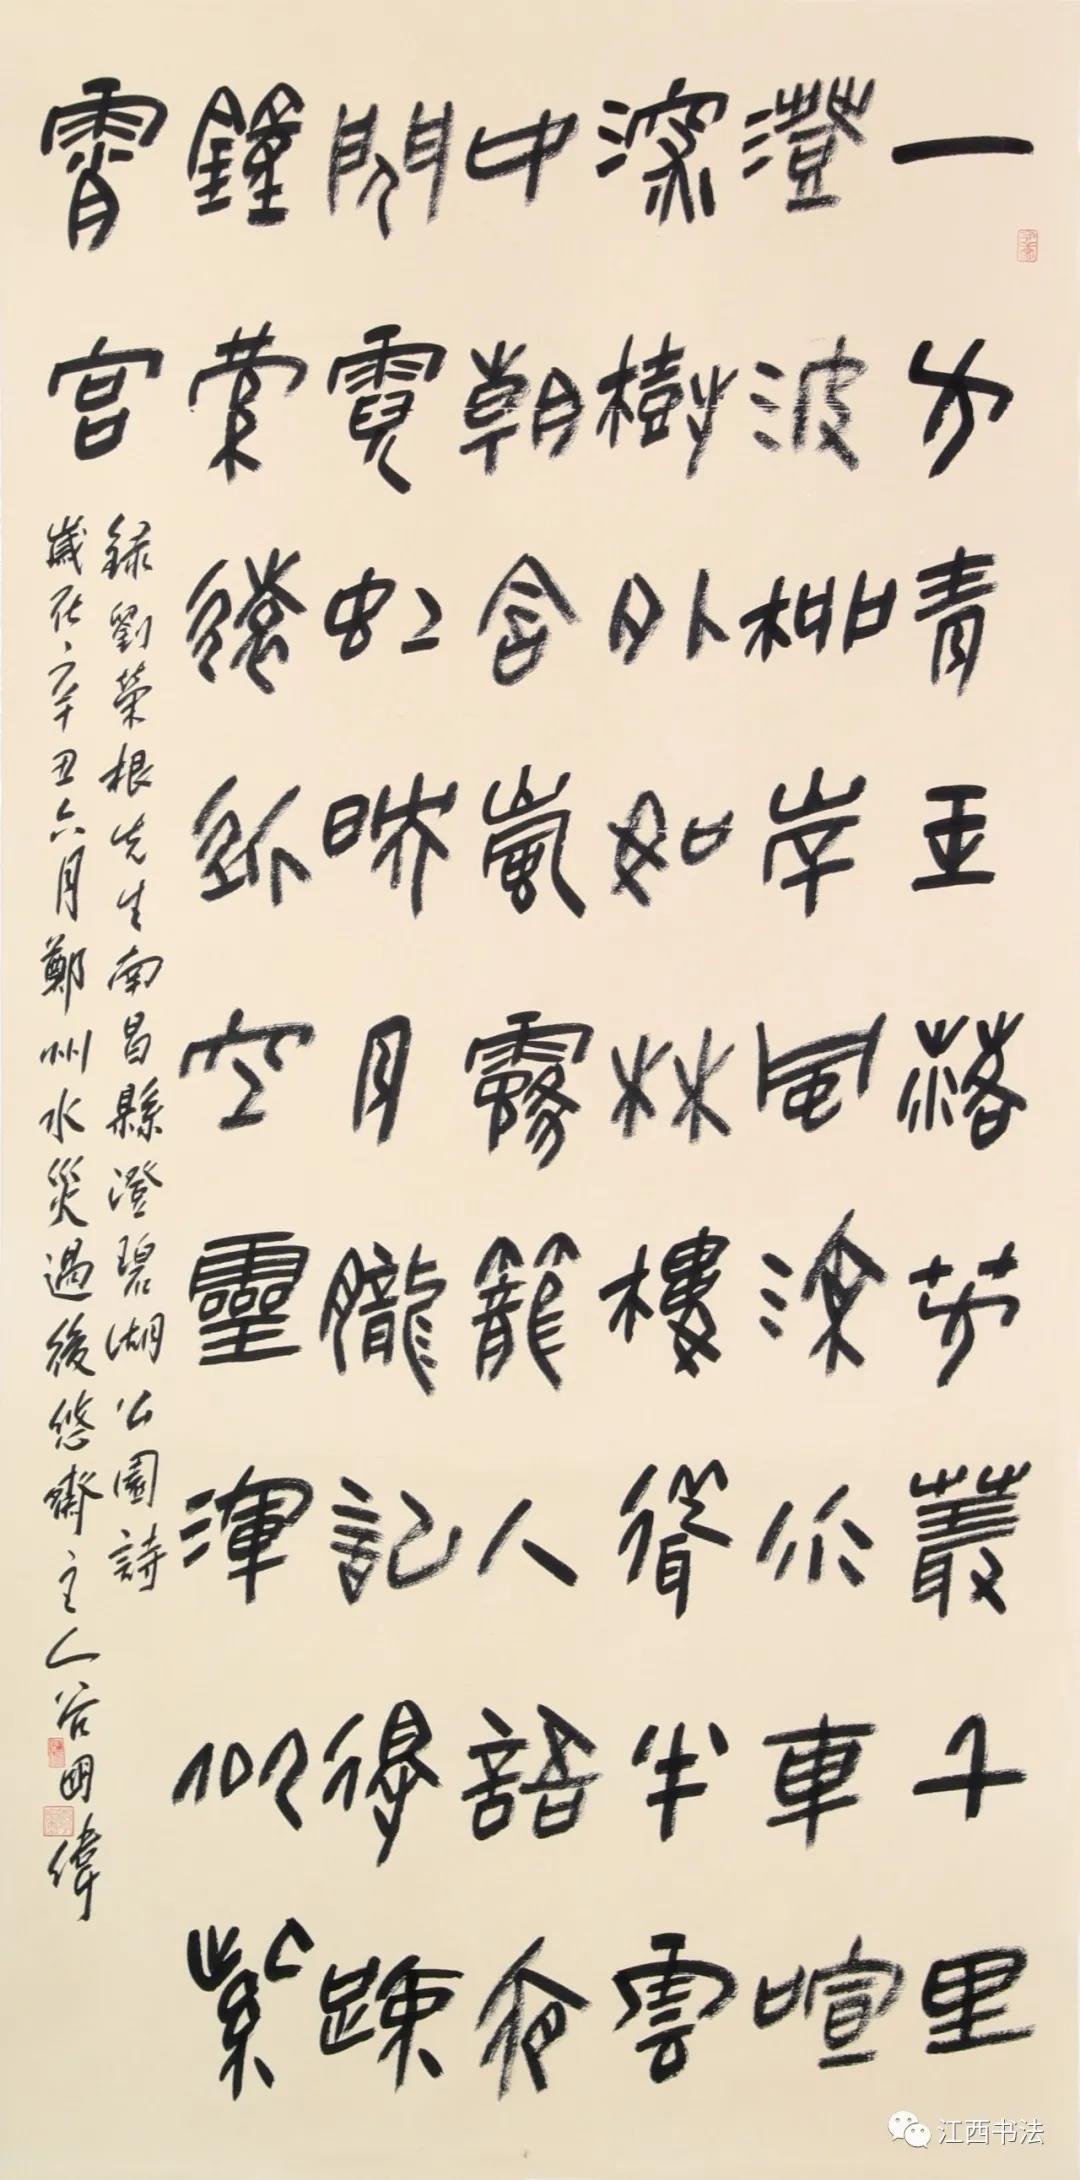 一方青玉落芳叢千里
澄波柳岸風尒車喧
深樹外如林樓聳半雲
中朝含嵐霧籠人語夜
閃霓虹映月朧記得踈
鐘常空靈渾似紫
霄宮
錄劉榮根先生南昌縣澄碧湖公園詩
歲在辛丑六月鄭州水災過後悠齋主人谷明偉
江西书法